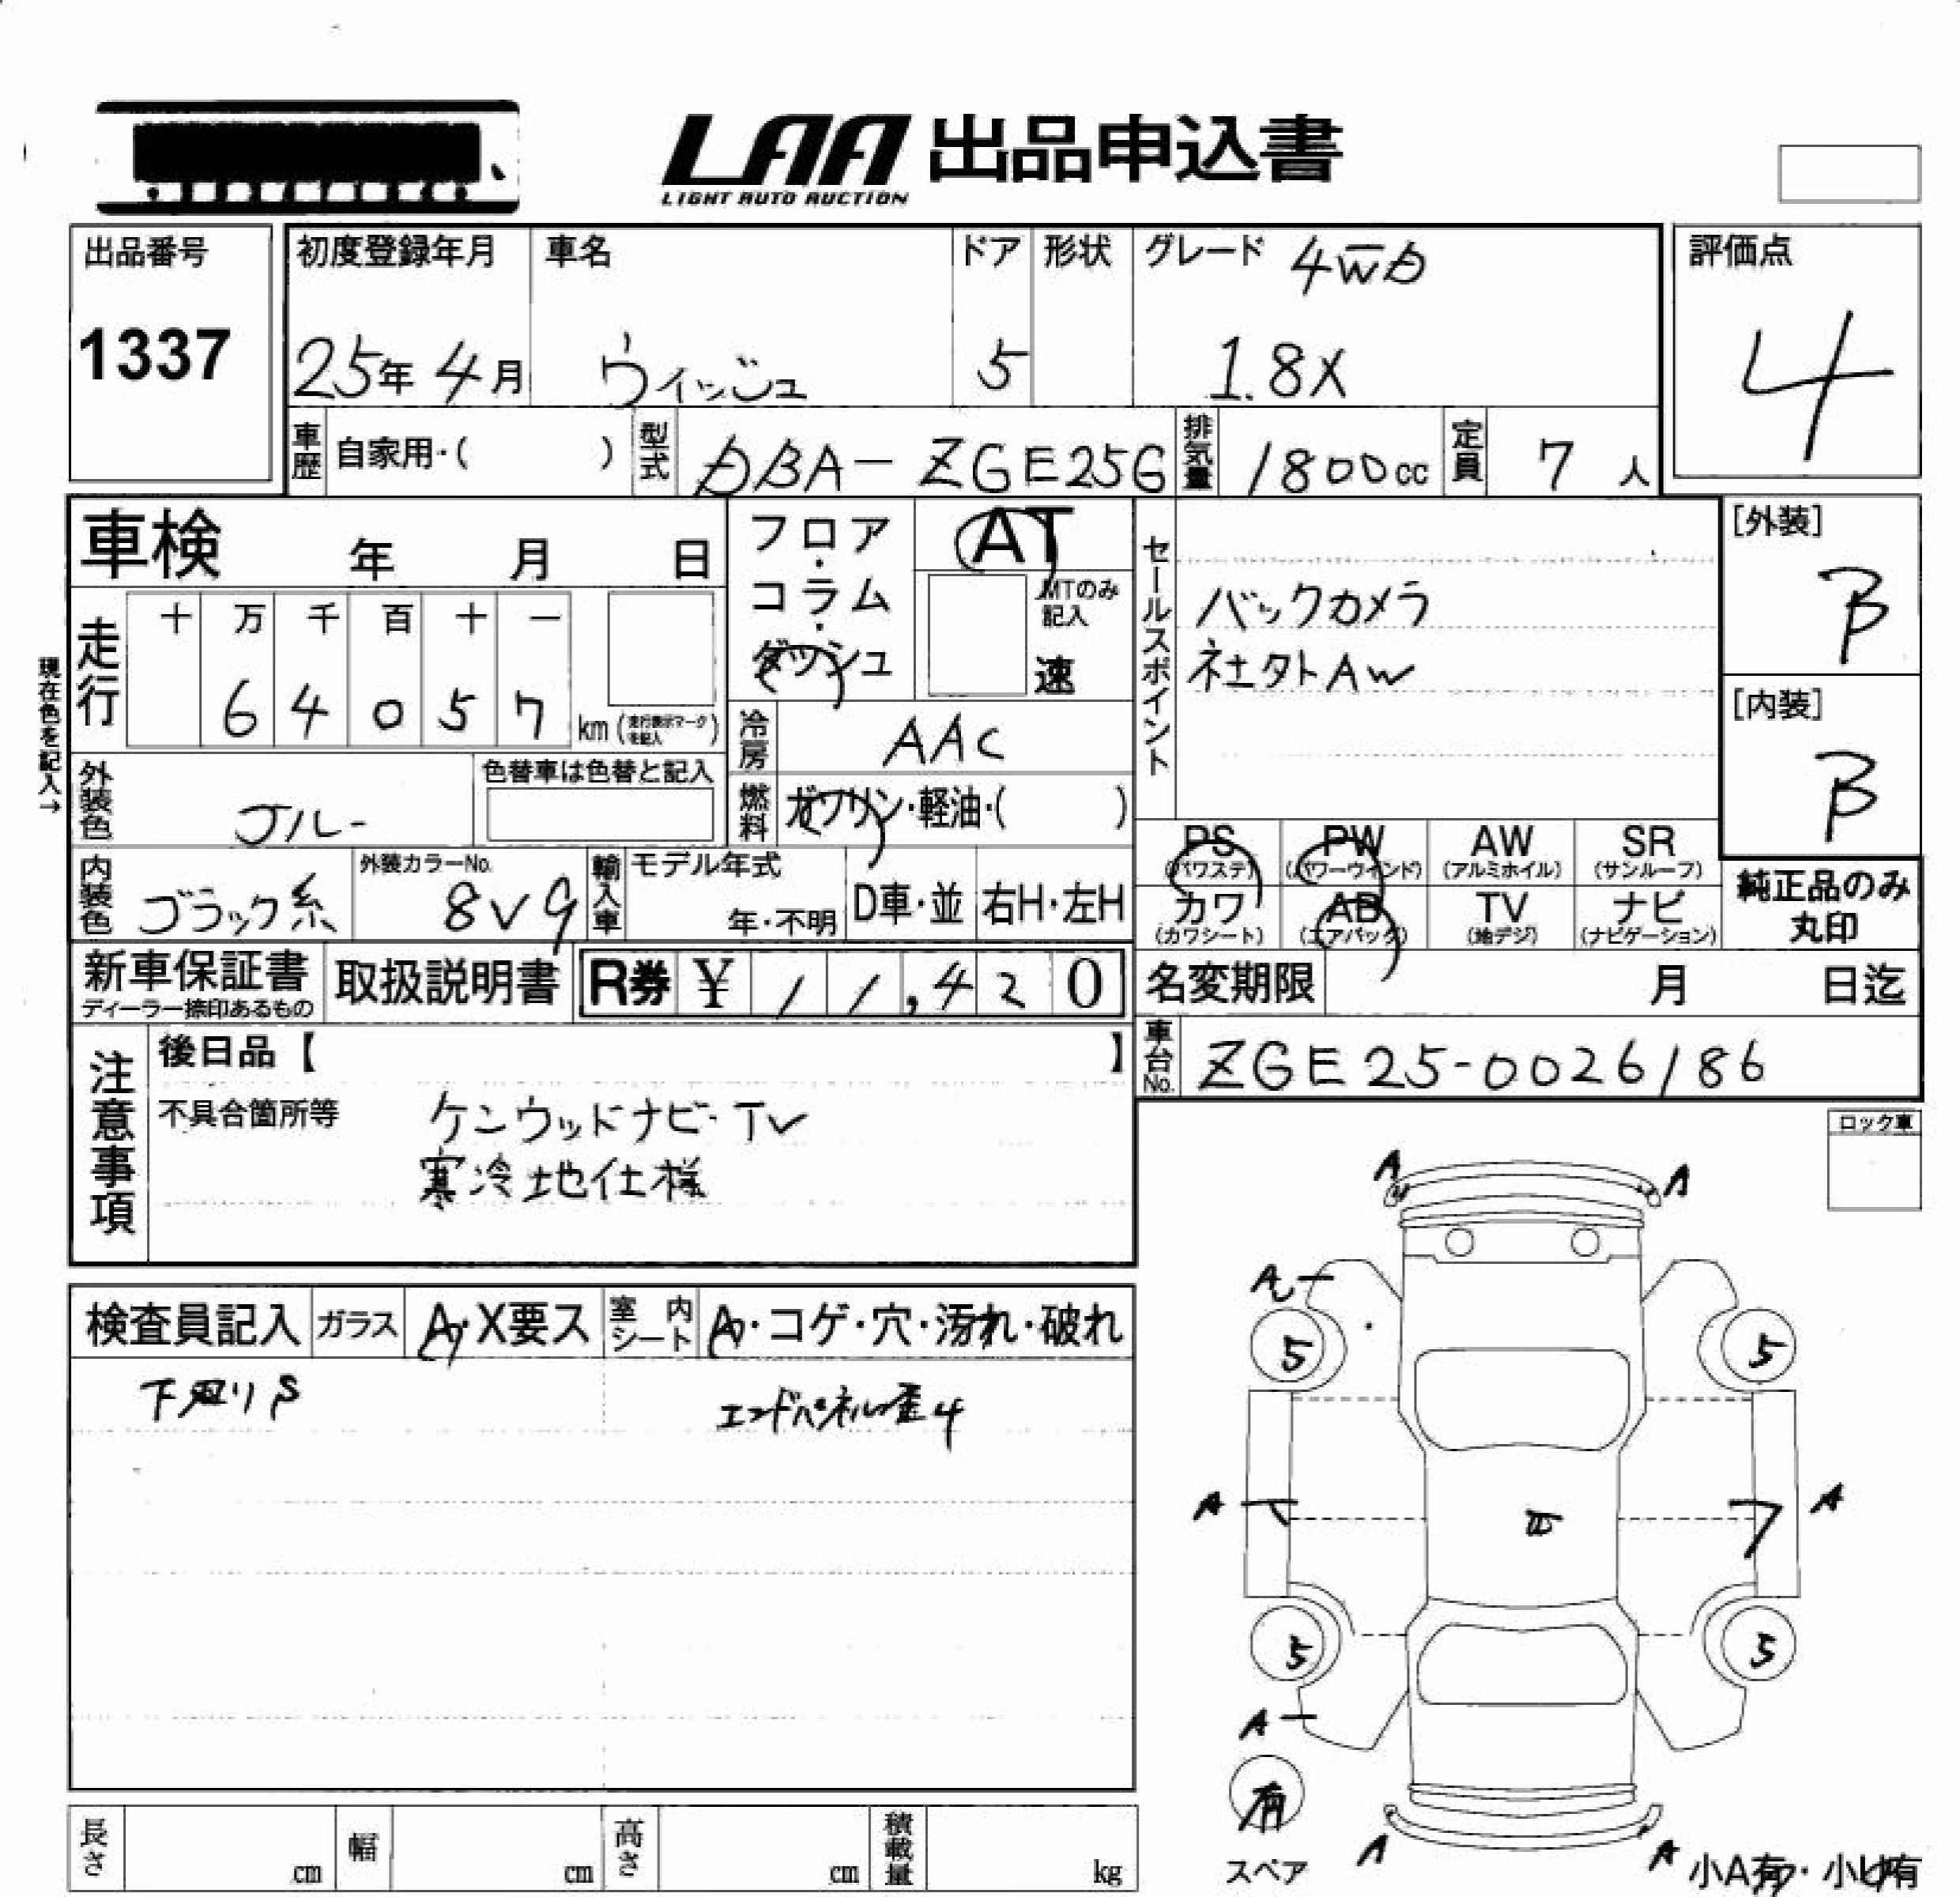 LAA 出品申込書
LIGHT AUTO AUCTION
出品番号
1337
初度登録年月
25年 4月
車名
ウィッシュ
ドア
5
形状
グレード 4WD
1.8X
評価点
4
車歴 自家用・( )
型式 DBA-ZGE25G
排気量 1800cc
定員 7人
車検 年 月 日
フロア・コラム・ダッシュ
AT
MTのみ記入
速
セールスポイント
バックカメラ
社外AW
[外装]
B
[内装]
B
現在色を記入→
走行 十 万 千 百 十 一
6 4 0 5 7 km (走行表示マークを記入)
冷房 AAC
外装色 ブルー
色替車は色替と記入
燃料 ガソリン・軽油・( )
内装色 ブラック系
外装カラーNo.
8V9
輸入車 モデル年式
年・不明
D車・並 右H・左H
PS (パワステ)
PW (パワーウィンド)
AW (アルミホイル)
SR (サンルーフ)
カワ (カワシート)
AB (エアバッグ)
TV (地デジ)
ナビ (ナビゲーション)
純正品のみ
丸印
新車保証書
ディーラー捺印あるもの
取扱説明書
R券 ¥ 11,420
名変期限 月 日迄
車台No. ZGE25-0026186
注意事項
後日品【 】
不具合箇所等 ケンウッドナビ・TV
寒冷地仕様
ロック車
検査員記入 ガラス A・X要ス
室内シート A・コゲ・穴・汚れ・破れ
下廻りS
エンドパネル歪4
A A
A
5 5
A A
5 5
A
有
スペア
A A
小A有・小U有
長さ cm
幅 cm
高さ cm
積載量 kg